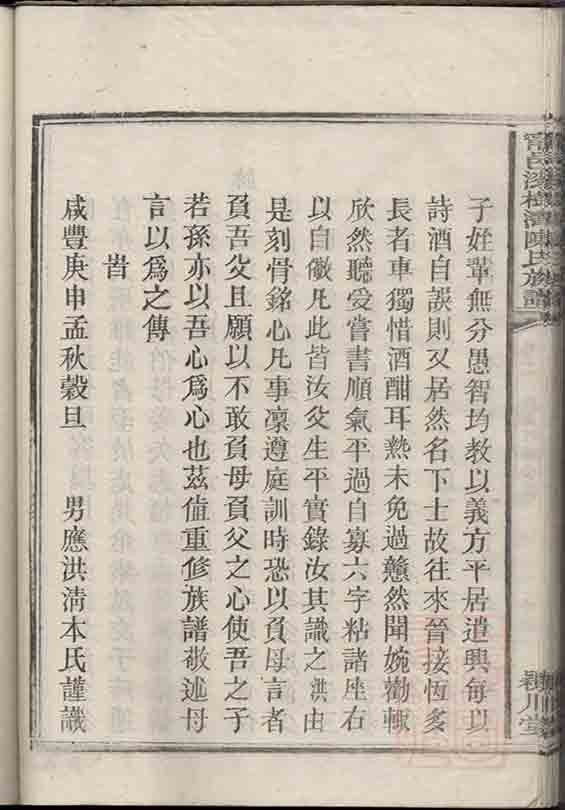 子姪輩無分愚智均敎以義方平居遣興每以
詩酒自誤則又居然名下士故往來晉接恆多
長者車獨惜酒酣耳熱未免過戇然聞婉勸輙
欣然聽受嘗書順氣平過自寡六字粘諸座右
以自儆凡此皆汝父生平實錄汝其識之洪由
是刻骨銘心凡事凛遵庭訓時恐以負母言者
負吾父且願以不敢負母負父之心使吾之子
若孫亦以吾心爲心也茲值重修族譜敬述母
言以爲之傳
旹
咸豐庚申孟秋穀旦 男應洪淸本氏謹識
陳氏族譜
潁川堂